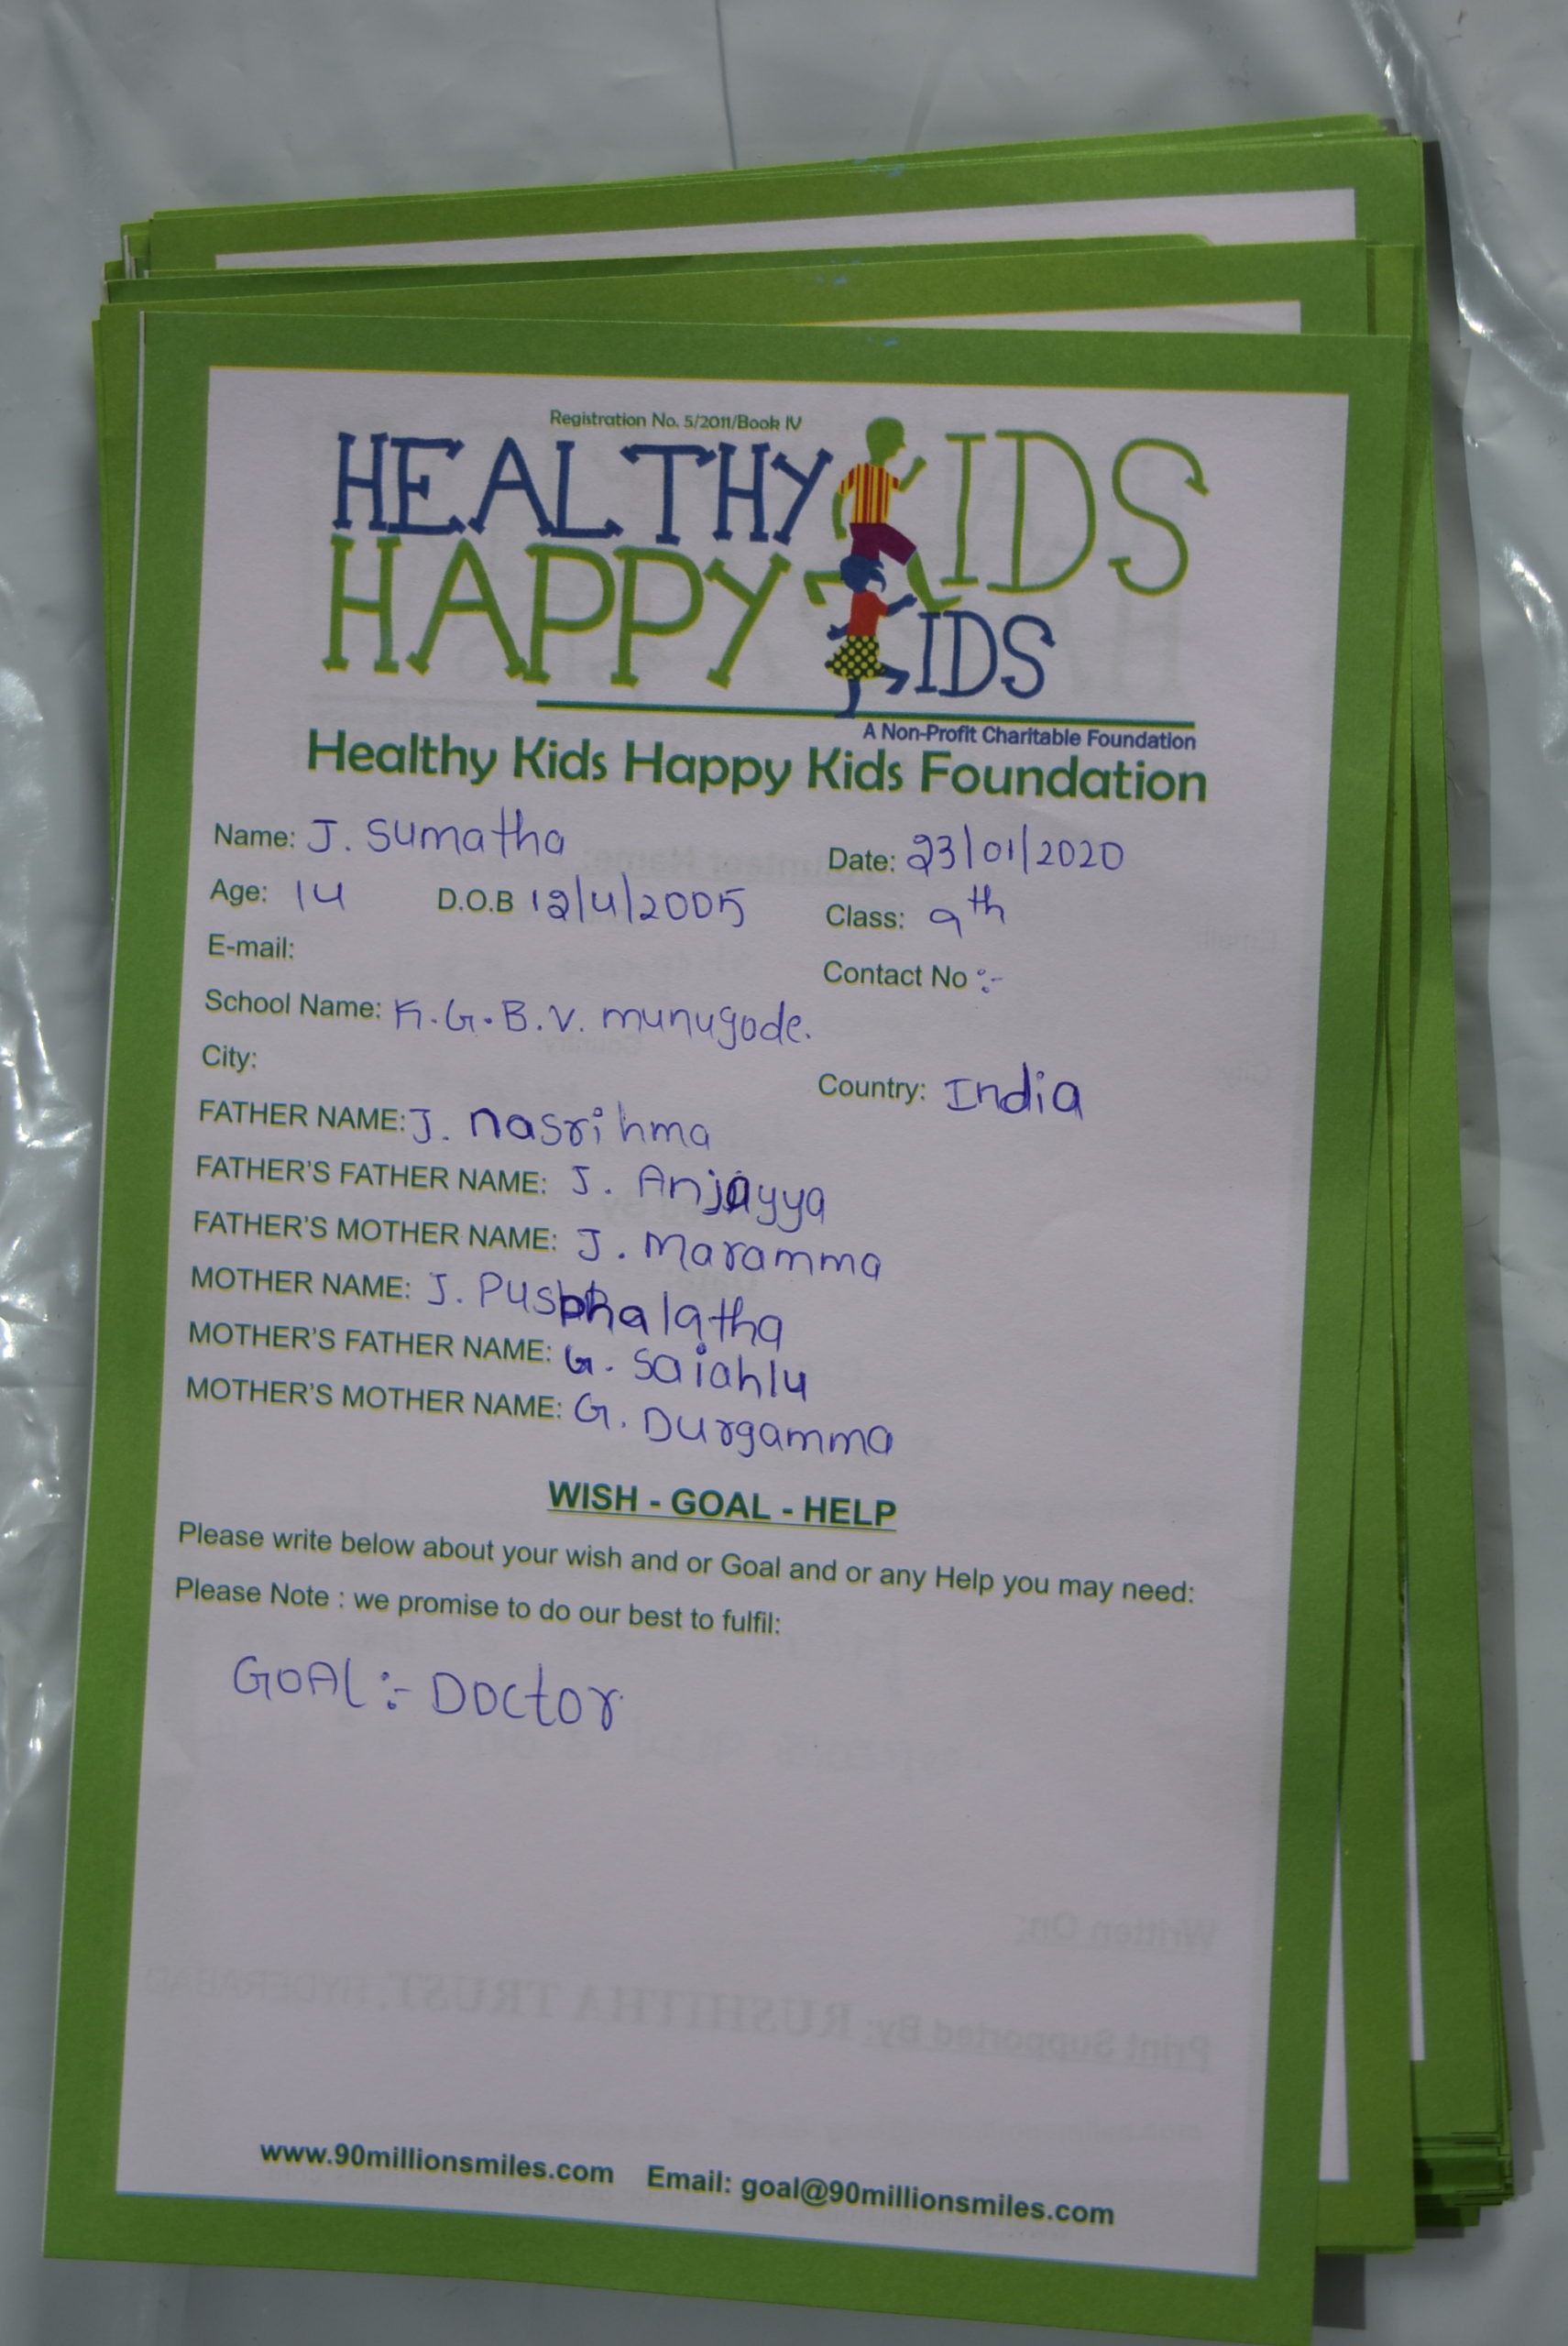 Registration No. 5/2011/Book IV
HEALTHY KIDS
HAPPY KIDS
A Non-Profit Charitable Foundation
Healthy Kids Happy Kids Foundation
Name: J. Sumatha Date: 23/01/2020
Age: 14 D.O.B 12/4/2005 Class: 9th
E-mail: Contact No :-
School Name: K.G.B.V. munugode.
City: Country: India
FATHER NAME: J. nasrihma
FATHER'S FATHER NAME: J. Anjayya
FATHER'S MOTHER NAME: J. Maramma
MOTHER NAME: J. Pusphalatha
MOTHER'S FATHER NAME: G. Saiahlu
MOTHER'S MOTHER NAME: G. Durgamma
WISH - GOAL - HELP
Please write below about your wish and or Goal and or any Help you may need:
Please Note : we promise to do our best to fulfil:
GOAL :- Doctor
Written On:
Print Supported By: RUSHITHA TRUST, HYDERABAD
www.90millionsmiles.com Email: goal@90millionsmiles.com